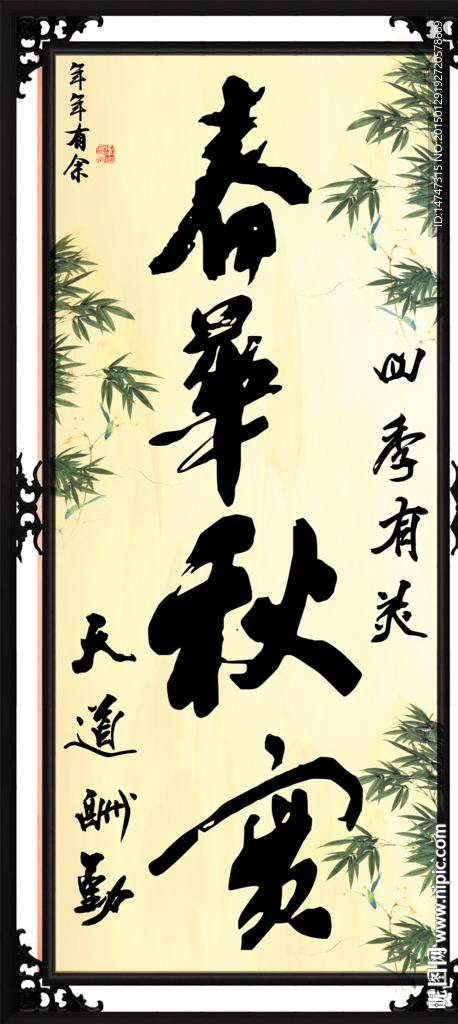 四季有美
春華秋实
年年有余
天道酬勤
ID:14747315 NO:20150129192720578669
昵图网 www.nipic.com